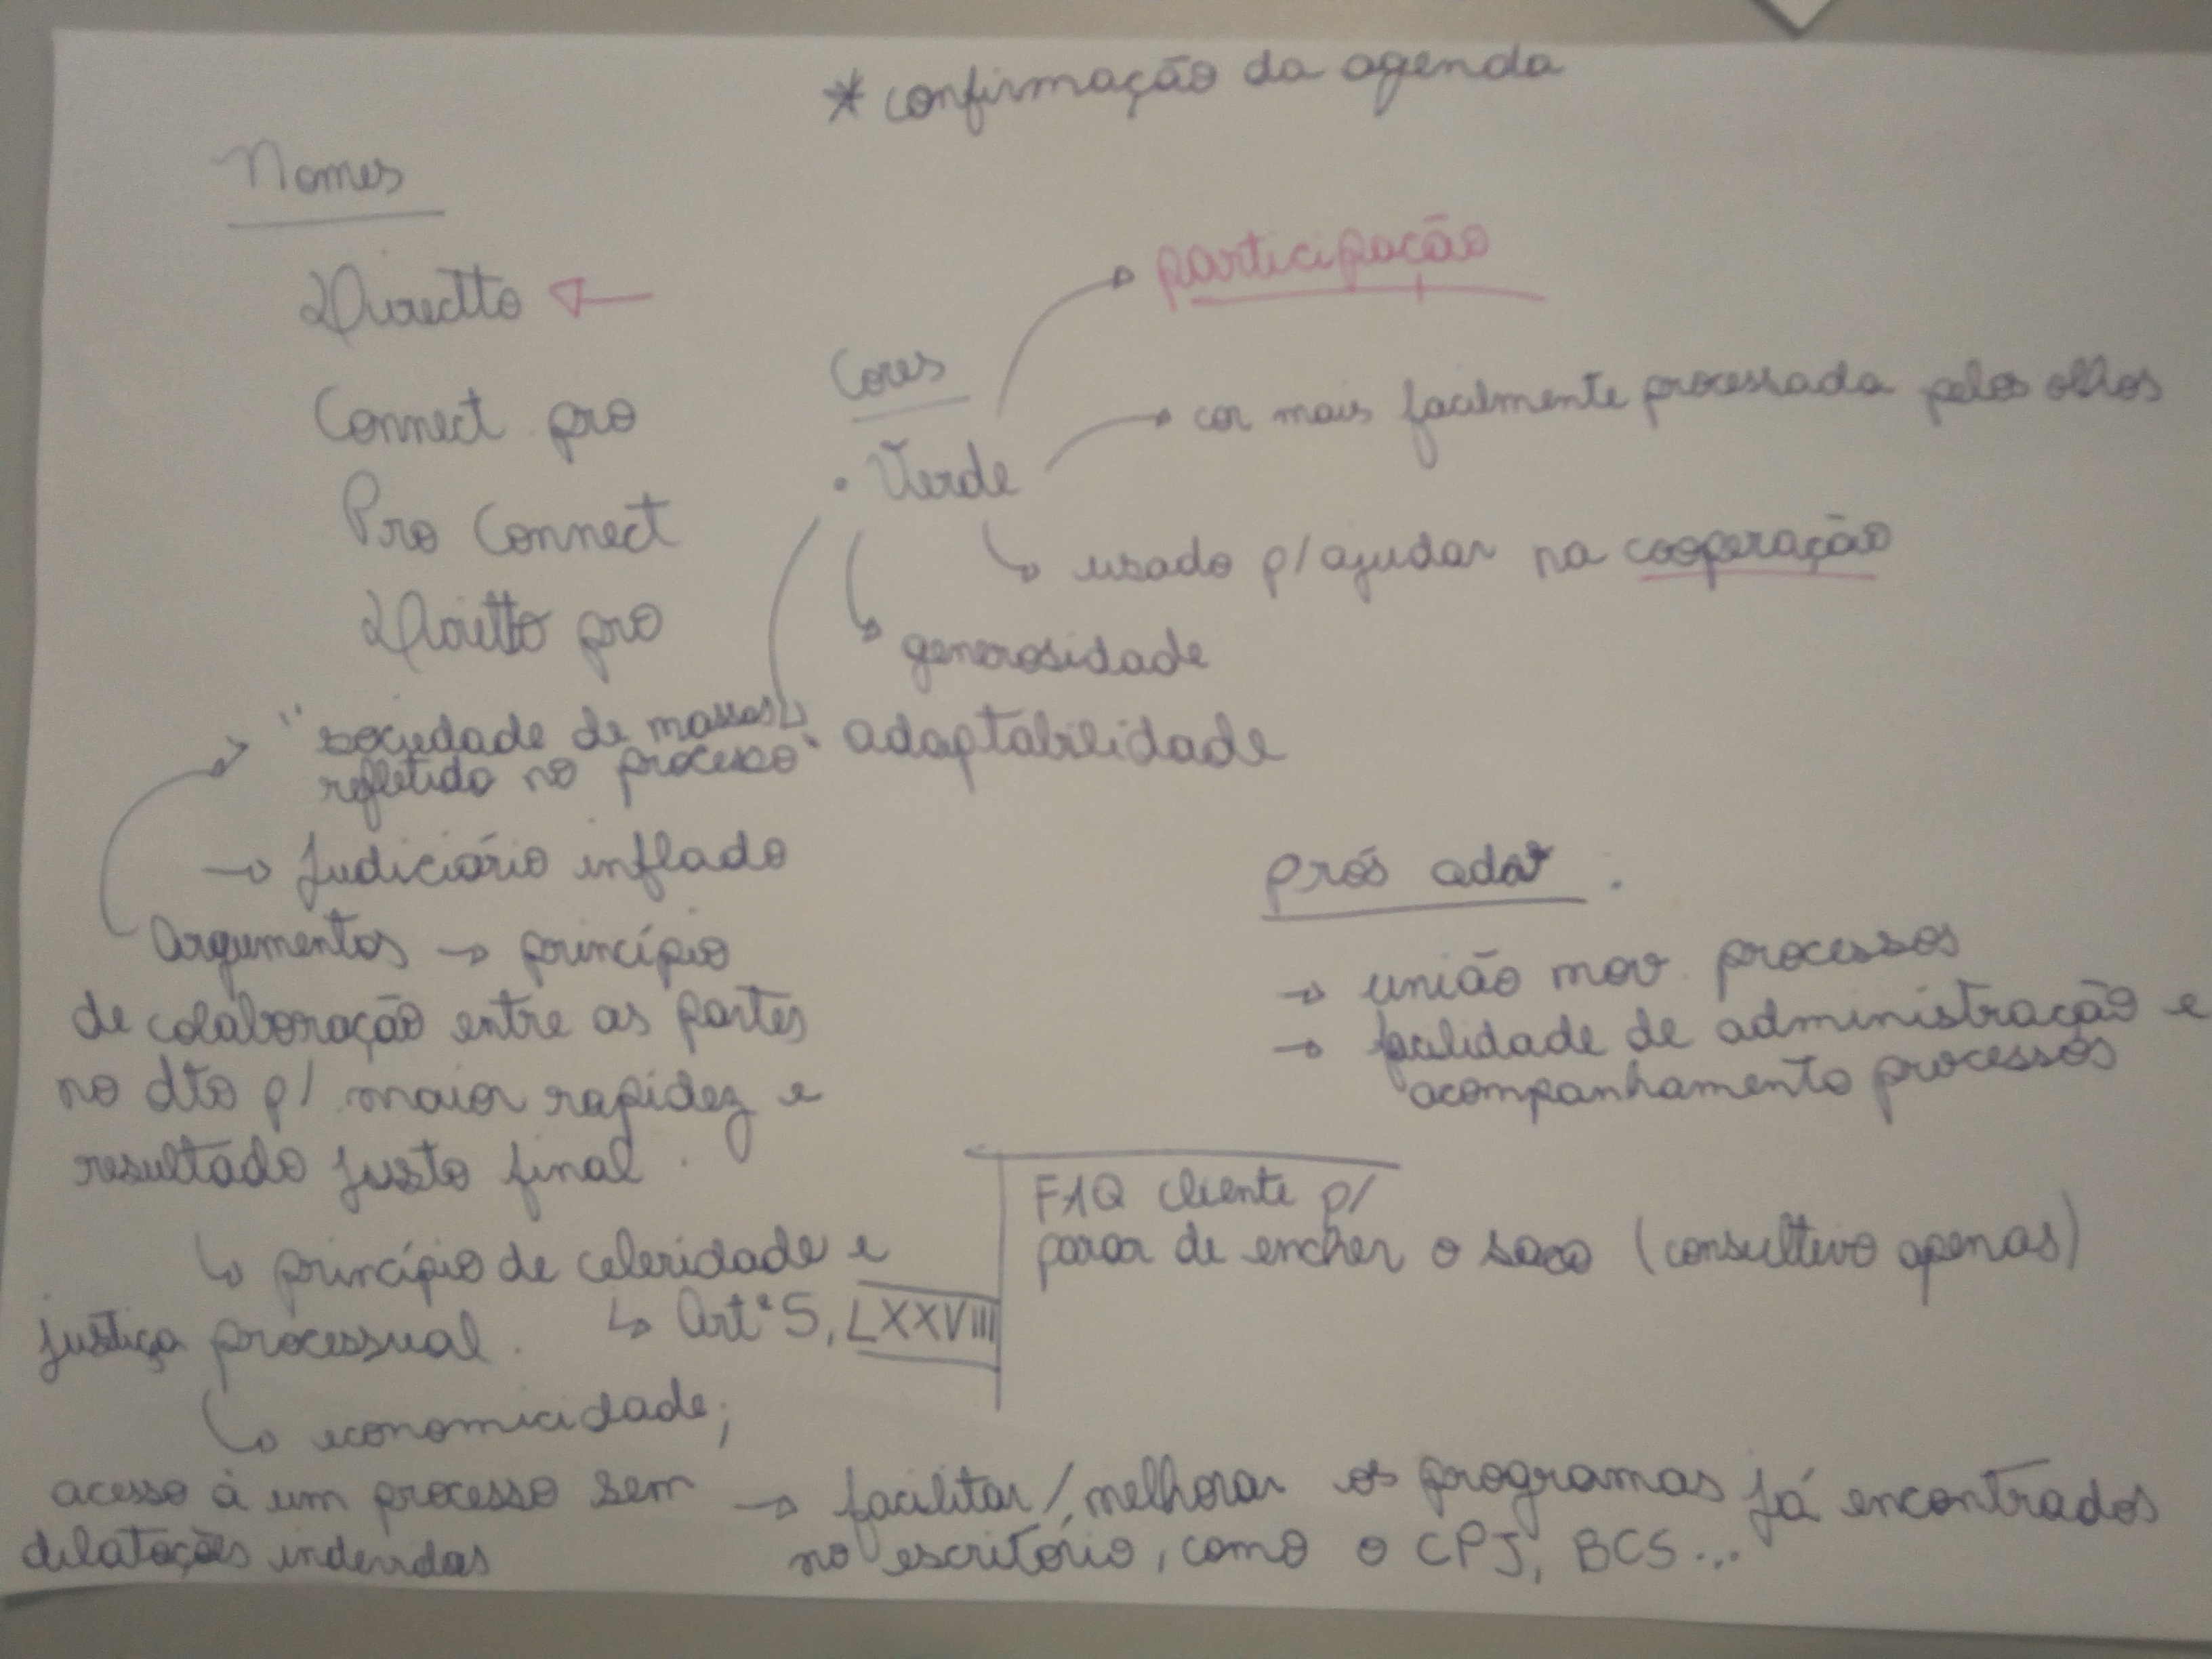 * confirmação da agenda
Nomes
Directto
Connect pro
Pro Connect
Diretto pro
Cores
• Verde
participação
cor mais facilmente processada pelos olhos
usado p/ ajudar na cooperação
generosidade
adaptabilidade
"sociedade de massas
refletida no processo"
→ Judiciário inflado
Argumentos → princípio
de colaboração entre as partes
no dto p/ maior rapidez e
resultado justo final.
↳ princípio de celeridade e
justiça processual.
↳ Artº 5, LXXVIII
↳ economicidade;
acesso à um processo sem
dilatações indevidas
prós adv.
→ união mov. processos
→ facilidade de administração e
acompanhamento processos
FAQ cliente p/
parar de encher o saco (consultivo apenas)
→ facilitar/melhorar os programas já encontrados
no escritório, como o CPJ, BCS...